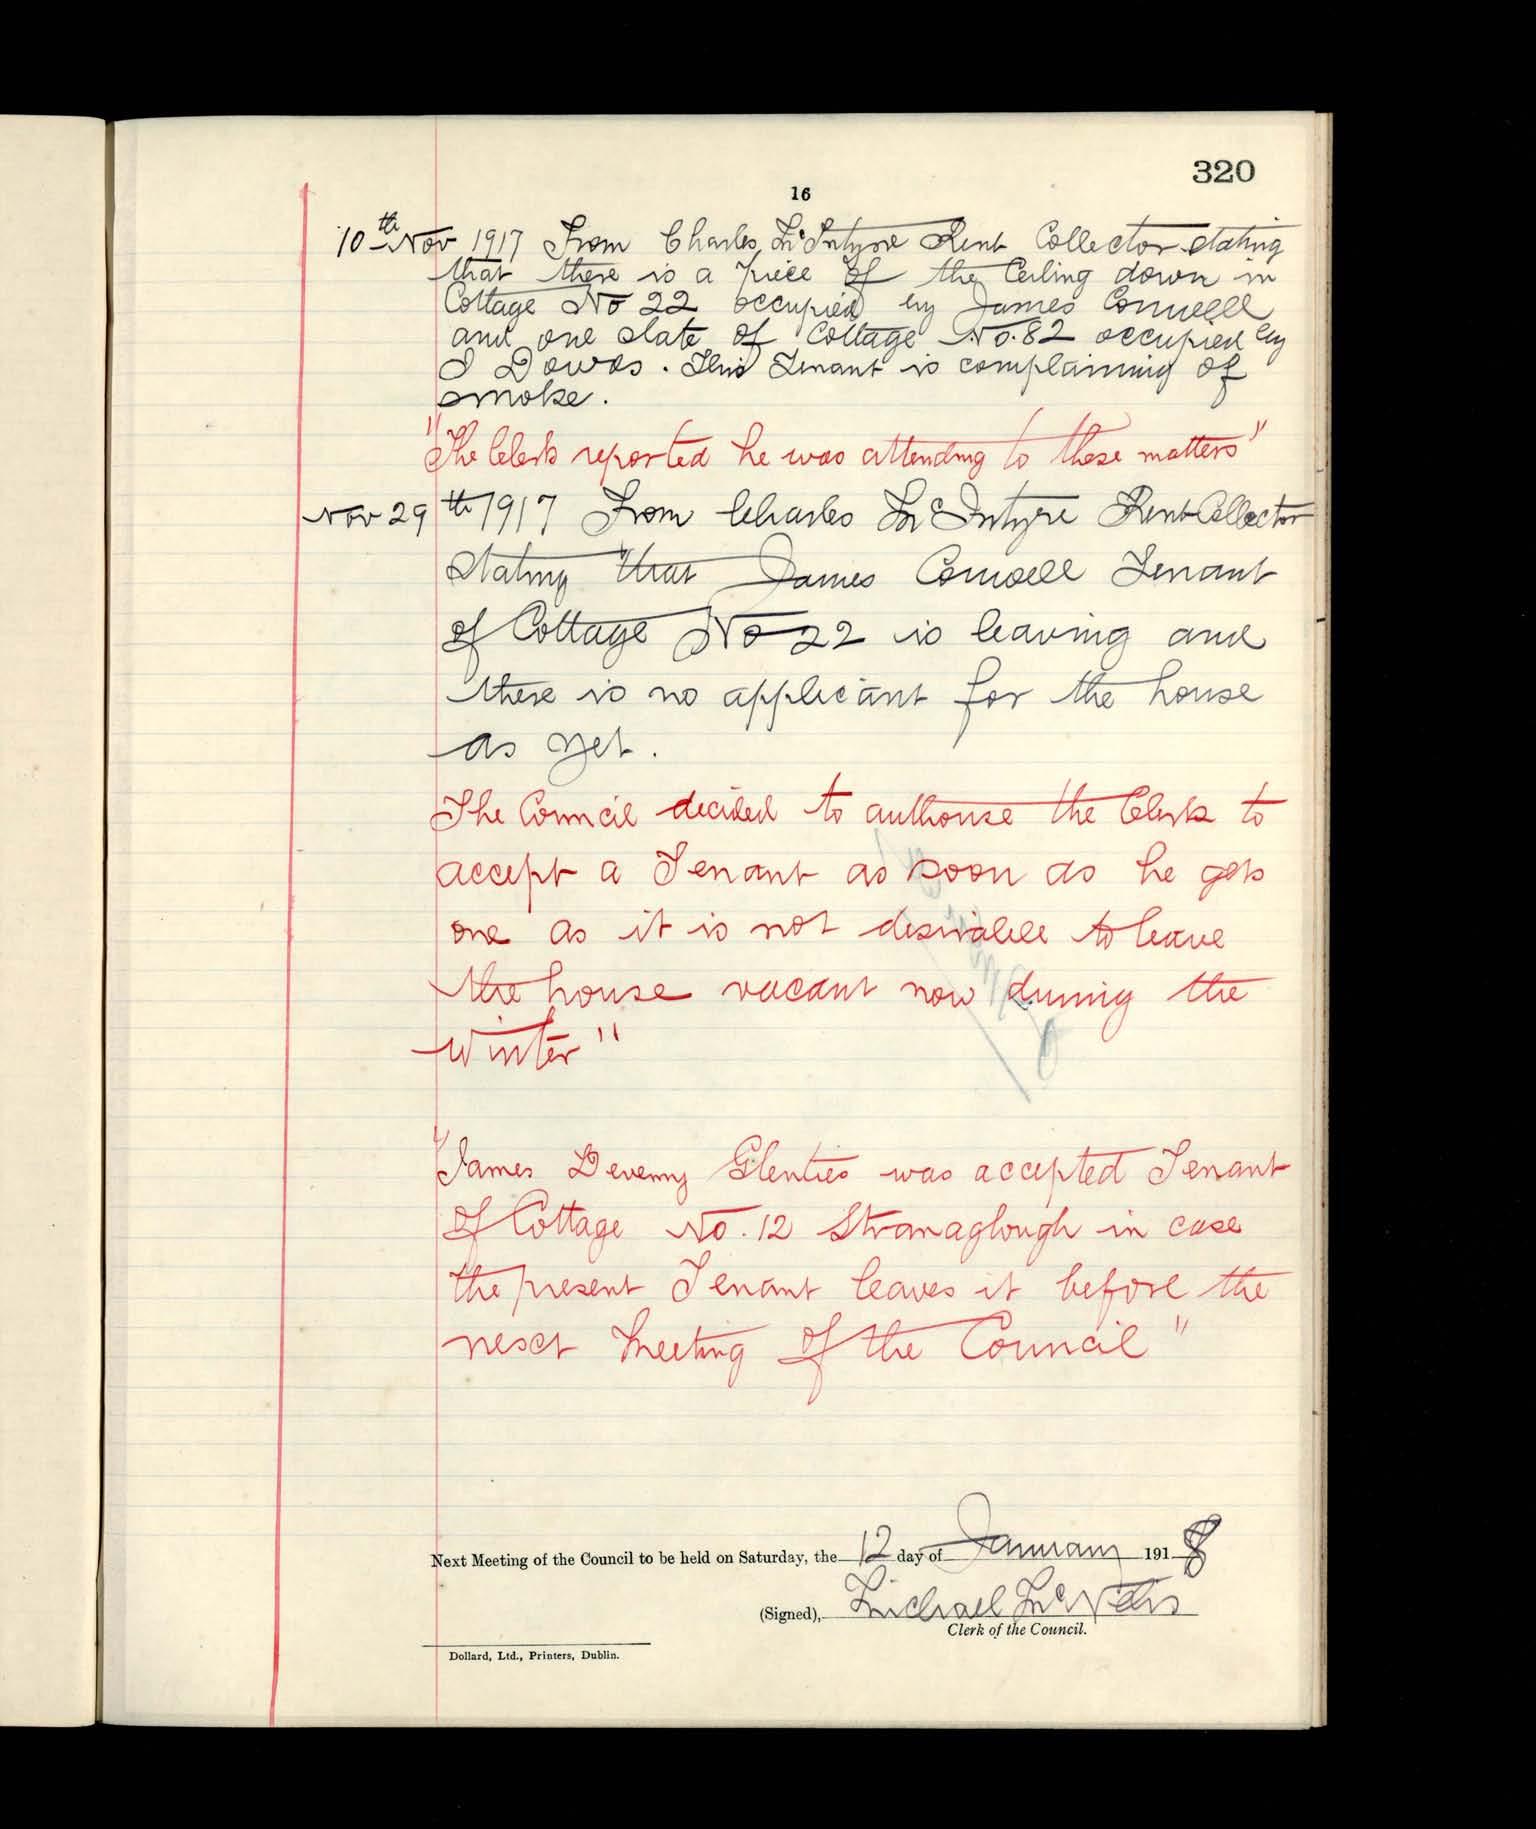 320
16
10th Nov 1917 From Charles McIntyre Rent Collector stating
that there is a piece of the Ceiling down in
Cottage No 22 occupied by James Connell
and one slate of Cottage No. 82 occupied by
J Dowds. This Tenant is complaining of
smoke.
"The Clerk reported he was attending to these matters"
Nov 29th 1917 From Charles McIntyre Rent Collector
stating that James Conwell Tenant
of Cottage No 22 is leaving and
there is no applicant for the house
as yet.
The Council decided to authorise the Clerk to
accept a Tenant as soon as he gets
one as it is not desirable to leave
the house vacant now during the
winter"
"James Deveny Glenties was accepted Tenant
of Cottage No. 12 Stranaglough in case
the present Tenant leaves it before the
next Meeting of the Council"
Next Meeting of the Council to be held on Saturday, the 12 day of January 1918
(Signed), Michael McNelis
Clerk of the Council.
Dollard, Ltd., Printers, Dublin.